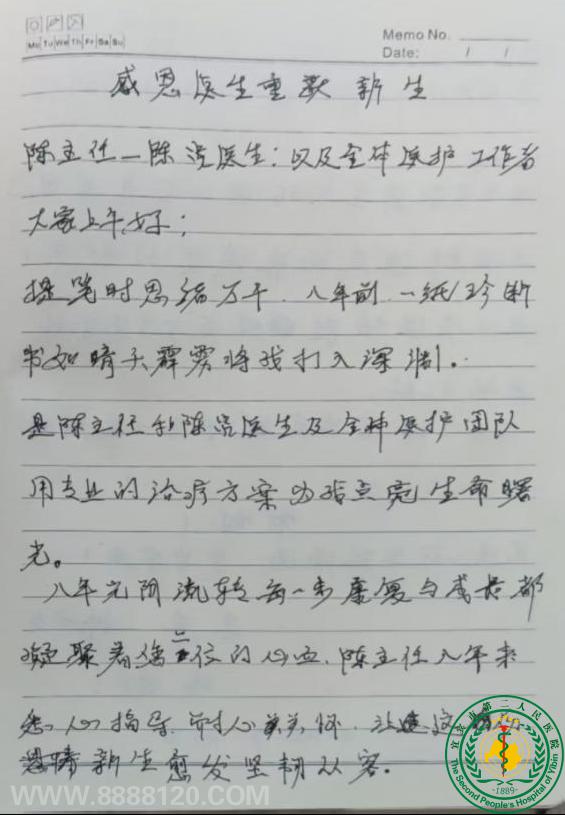 Memo No.
Mo Tu We Th Fr Sa Su
Date: / /
感恩医生重获新生
陈主任—陈说医生:以及全体医护工作者
大家上午好;
提笔时思绪万千.八年前.一纸诊断
书如晴天霹雳将我打入深渊。
是陈主任和陈说医生及全体医护团队
用专业的治疗方案为我点亮生命曙
光。
八年光阴流转每一步康复与成长都
凝聚着您二位的心血.陈主任八年来
悉心指导.耐心关怀.让
新生愈发坚韧从容。
宜宾市第二人民医院
The Second People's Hospital of Yibin
-1889-
WWW.8888120.COM